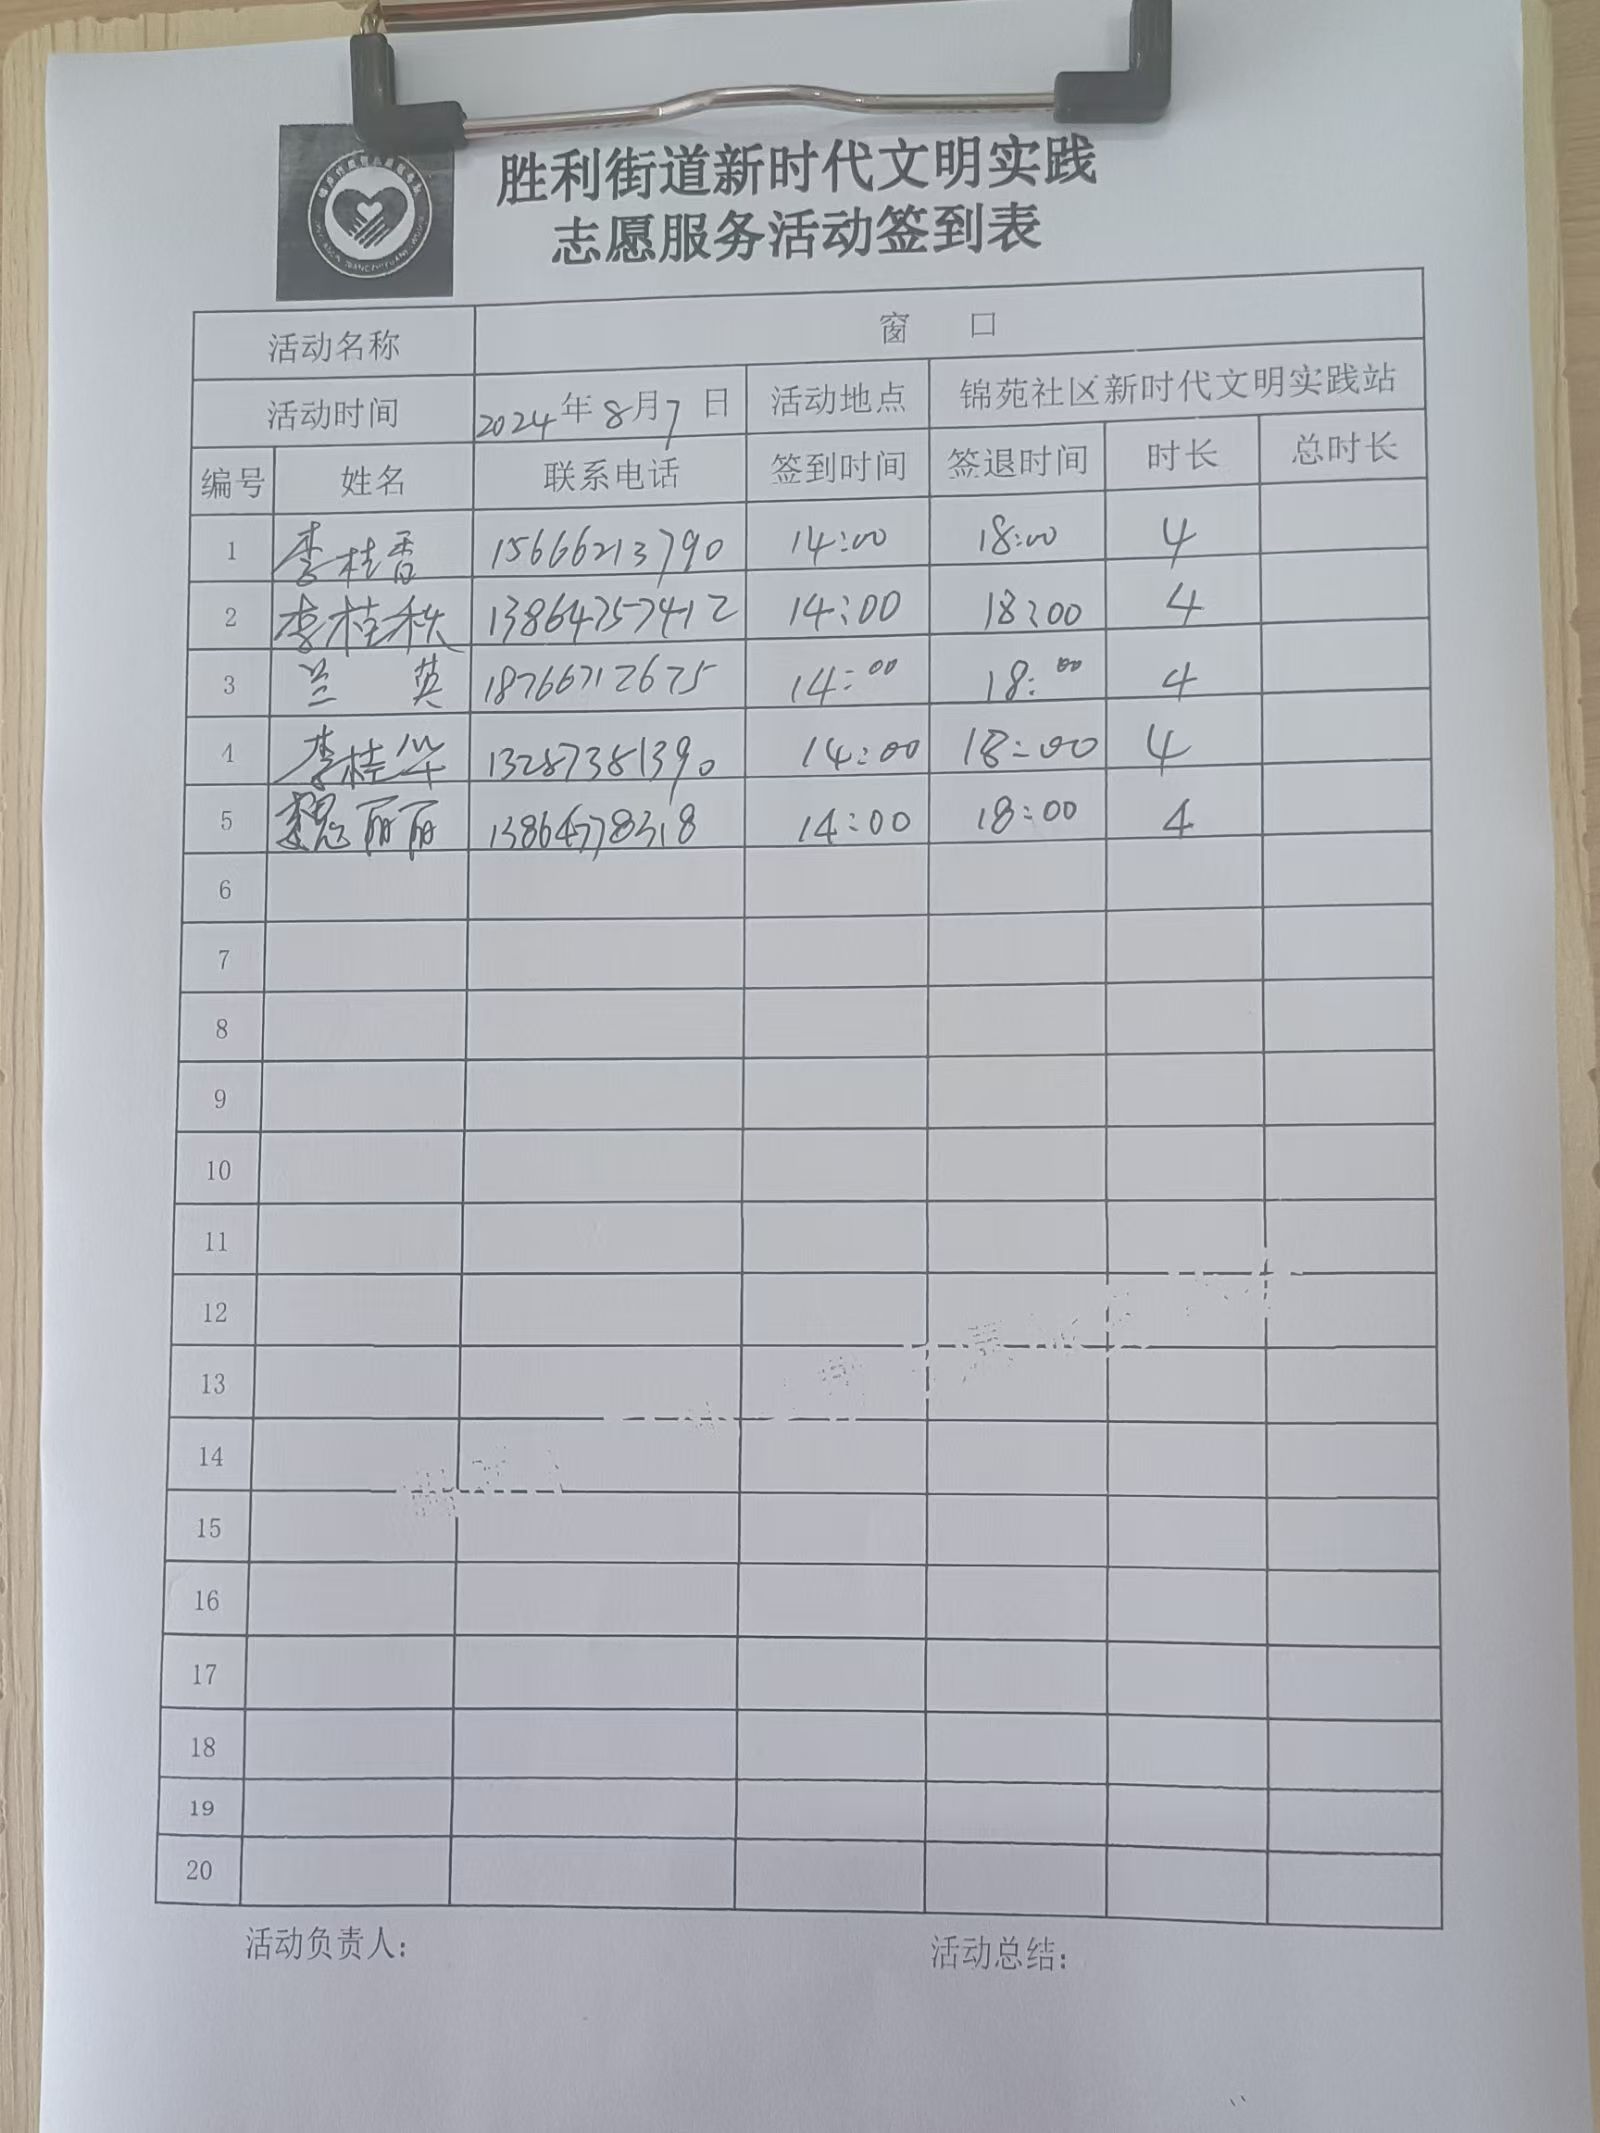 胜利街道新时代文明实践
志愿服务活动签到表
活动名称 窗 口
活动时间 2024年8月7日 活动地点 锦苑社区新时代文明实践站
编号 姓名 联系电话 签到时间 签退时间 时长 总时长
1 李桂香 15666213790 14:00 18:00 4
2 李桂秩 13864757412 14:00 18:00 4
3 兰英 18766712675 14:00 18:00 4
4 李桂华 13287381390 14:00 18:00 4
5 魏丽丽 13864778318 14:00 18:00 4
6
7
8
9
10
11
12
13
14
15
16
17
18
19
20
活动负责人: 活动总结: